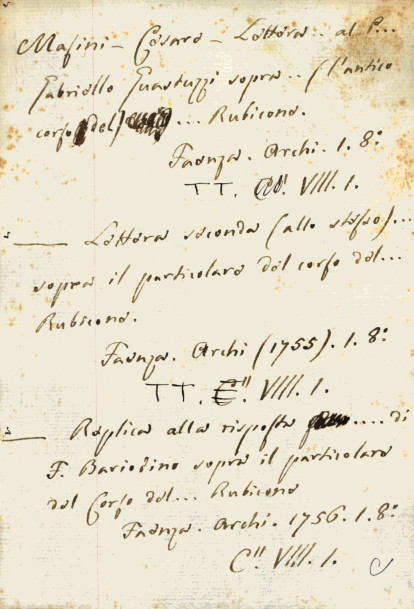 Masini - Cesare - Lettera .. al P...
Gabriello Guastuzzi sopra .. (l'antico
corso) del) .... Rubicone.
Faenza. Archi. 1. 8°
TT. VIII. 1.
— Lettera seconda (allo stesso) ...
sopra il particolare del corso del...
Rubicone.
Faenza. Archi (1755). 1. 8°
TT. E". VIII. 1.
— Replica alla risposta .... di
F. Bariodino sopra il particolare
del Corso del... Rubicone
Faenza. Archi. 1756. 1. 8°
C" VIII. 1.